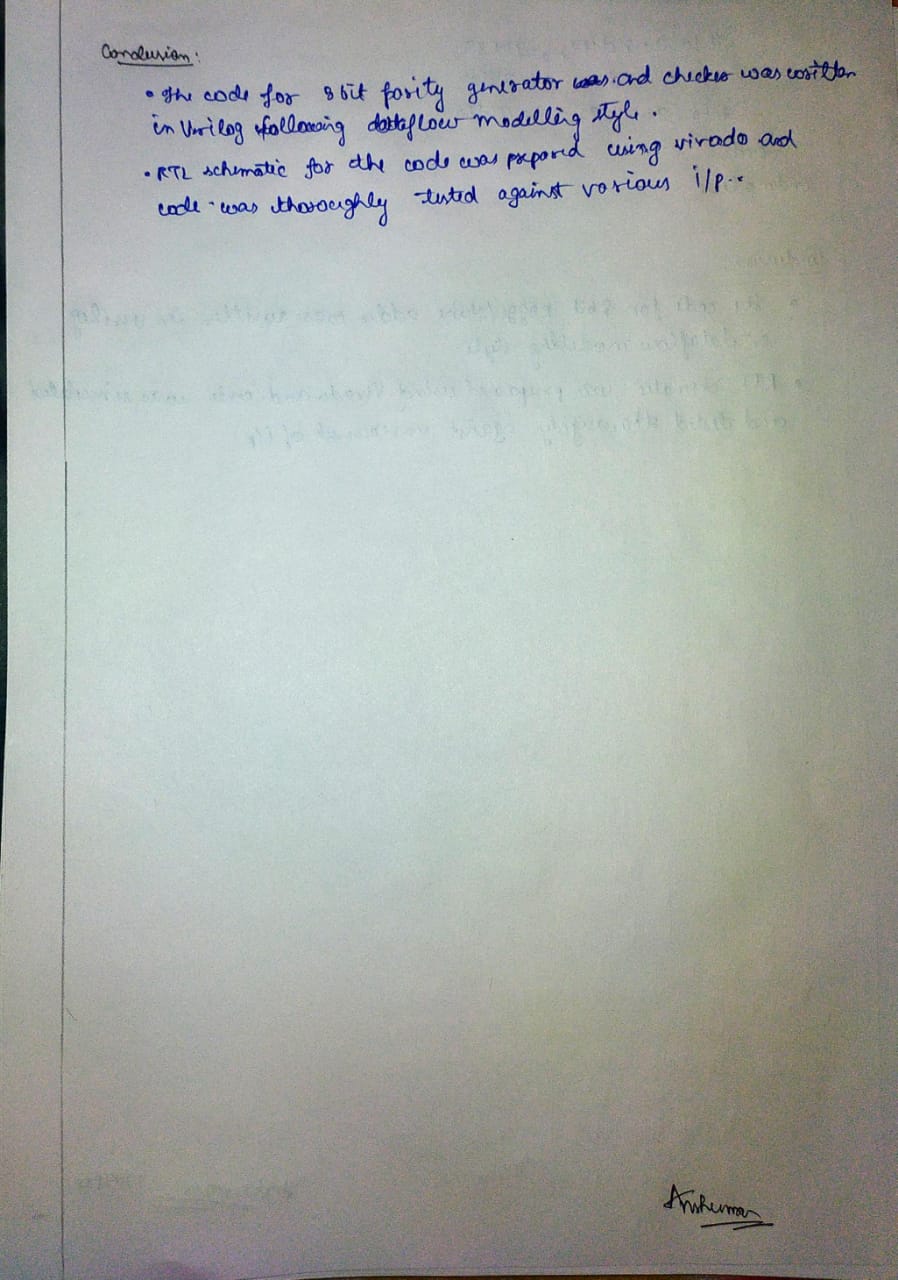 Conclusion:
• The code for 8 bit parity generator was and checker was written
in Verilog following dataflow modelling style.
• RTL schematic for the code was prepared using vivado and
code was thoroughly tested against various i/p.
Anshuman